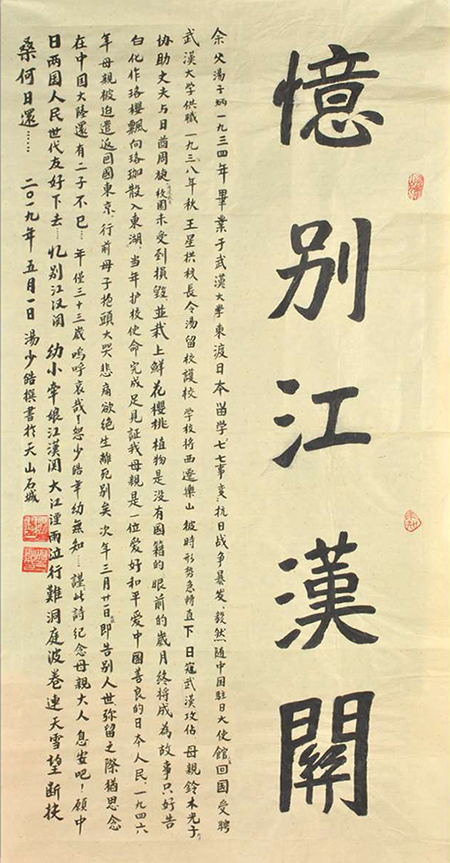 憶別江漢關
余父湯子炳一九三四年畢業于武漢大學東渡日本留學七七事变抗日战争暴发毅然随中国駐日大使館回國受聘
武漢大学供職一九三八年秋王星拱校長令湯留校護校学校将西遷樂山彼時形势急轉直下日寇武漢攻佔母親鈴木光子
協助丈夫与日酋周旋校園未受到損毀並栽上鮮花櫻桃植物是没有國籍的眼前的歲月终将成為故事只好告
白化作珞櫻飄向珞珈散入東湖当年护校使命完成足見証我母親是一位爱好和平爱中國善良的日本人民一九四六
年母親被迫遣返回國東京行前母子抱頭大哭悲痛欲绝生離死别矣次年三月廿一日即告别人世弥留之際猶思念
在中国大陸還有二子不已…年僅三十三歲嗚呼哀哉！恕少皓年幼無知…謹此詩纪念母親大人息安吧！願中
日两国人民世代友好下去…忆别江汉関 幼小牵娘江漢関 大江潼雨泣行難 洞庭波卷連天雪 望断扶
桑何日還…… 二〇一九年五月一日湯少皓撰書於天山石城